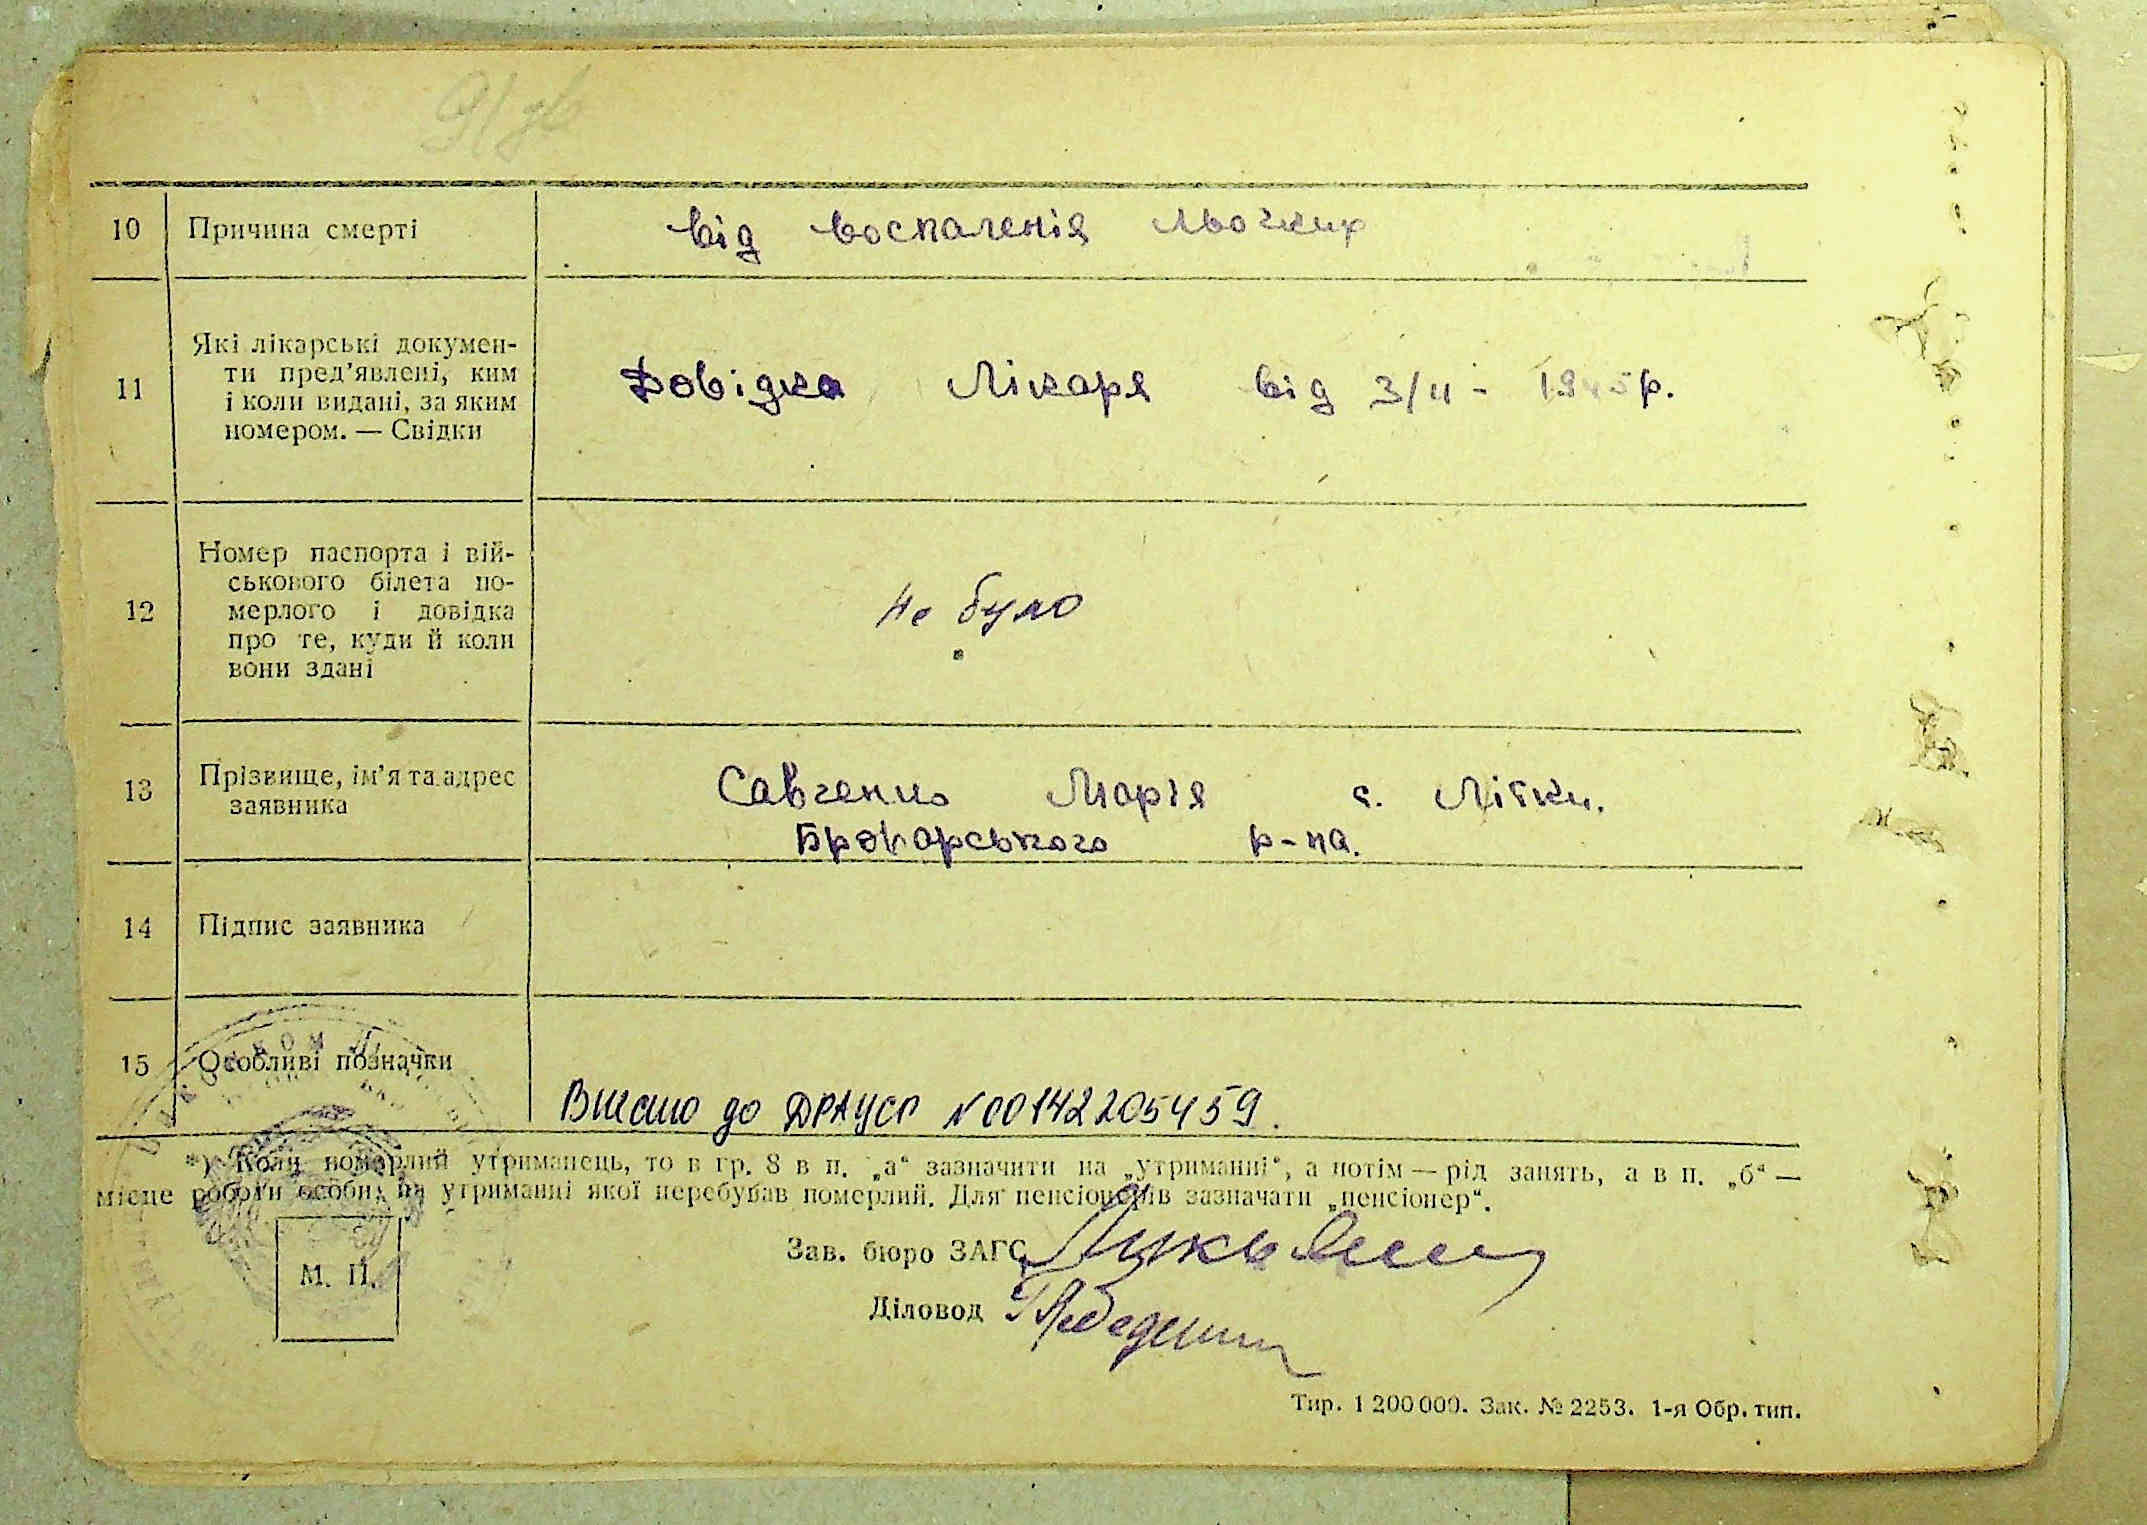 10 Причина смерті від воспаленія льогких
11 Які лікарські докумен-
ти пред’явлені, ким
і коли видані, за яким
номером. — Свідки
Довідка Лікаря від 3/II - 1945р.
12 Номер паспорта і вій-
ськового білета по-
мерлого і довідка
про те, куди й коли
вони здані
Не було
13 Прізвище, ім’я та адрес
заявника
Савченко Марія с. Літки.
Броварського р-на.
14 Підпис заявника
15 Особливі позначки
Внесено до ДРАЦСГ №00142205459.
*) Коли померлий утриманець, то в гр. 8 в п. „а“ зазначити на „утриманні“, а потім — рід занять, а в п. „б“ —
місце роботи особи, на утриманні якої перебував померлий. Для пенсіонерів зазначати „пенсіонер“.
Зав. бюро ЗАГС
Діловод
М. П.
Тир. 1 200 000. Зак. № 2253. 1-я Обр. тип.